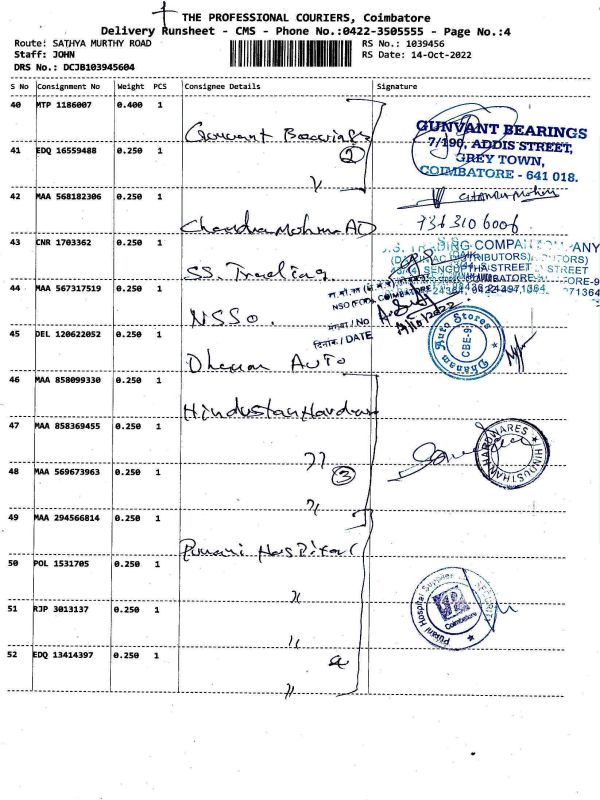 THE PROFESSIONAL COURIERS, Coimbatore
Delivery Runsheet - CMS - Phone No.:0422-3505555 - Page No.:4
Route: SATHYA MURTHY ROAD
RS No.: 1039456
Staff: JOHN
RS Date: 14-Oct-2022
DRS No.: DCJB103945604
S No Consignment No Weight PCS Consignee Details Signature
40 MTP 1186007 0.400 1
Gunvant Bearings
GUNVANT BEARINGS
7/196, ADDIS STREET,
GREY TOWN,
COIMBATORE - 641 018.
41 EDQ 16559488 0.250 1
2
42 MAA 568182306 0.250 1
Chandra Mohan AD
Chandra Mohan
7363106006
43 CNR 1703362 0.250 1
SS. Trading
44 MAA 567317519 0.250 1
NSSO.
NSO (FOD), COIMBATORE
संख्या / No
दिनांक / DATE
45 DEL 120622052 0.250 1
Dhanam Auto
Dhanam Auto Stores
CBE-9
46 MAA 858099330 0.250 1
Hindustan Hardware
47 MAA 858369455 0.250 1
"
HINDUSTHAN HARDWARES
48 MAA 569673963 0.250 1
3
"
49 MAA 294566814 0.250 1
Purani Hospital
50 POL 1531705 0.250 1
"
Purani Hospital Supplies
Coimbatore
SECURITY
51 RJP 3013137 0.250 1
"
52 EDQ 13414397 0.250 1
"